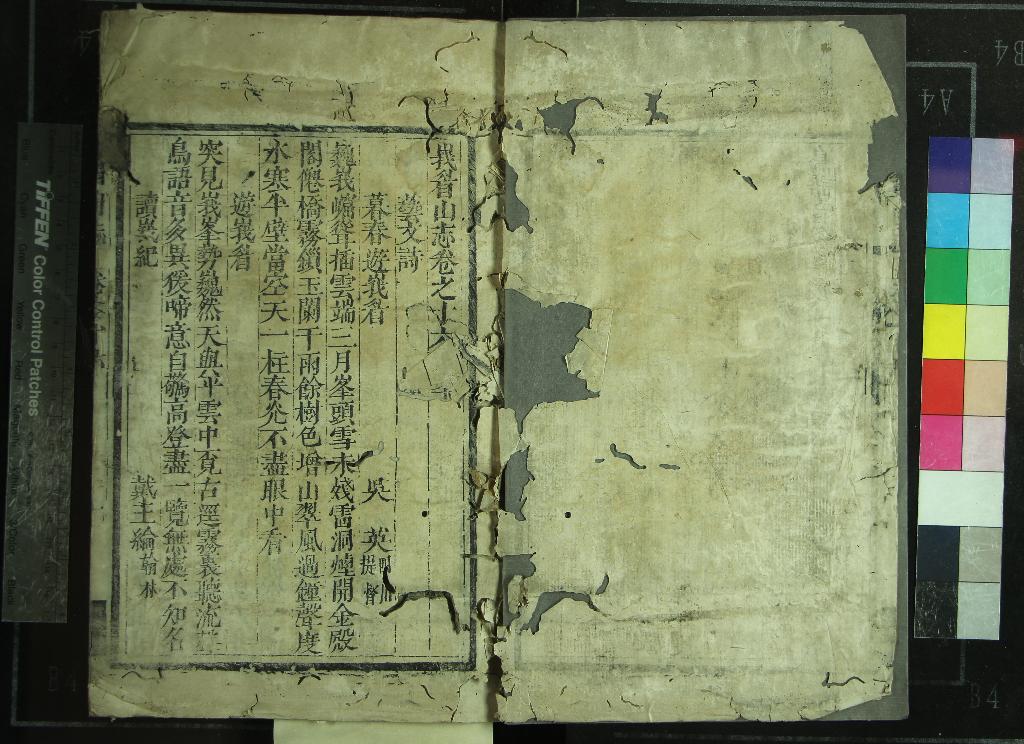 峩眉山志卷之十六
藝文詩
暮春遊峩眉
吳 英 提督
巍峩嶓聳插雲端三月峯頭雪未殘雷洞煙開金殿
閣僊橋霧鎖玉闌干雨餘樹色增山翠風過鐘聲度
水寒半壁當空天一柱春光不盡眼中看
遊峩眉
突見峩峯勢巍然天與平雲中覓古逕霧裏聽流
鳥語音多異猨啼意自驚高登盡一覽無處不知名
讀異紀
戴王綸 翰林
TIFFEN Color Control Patches
A4
B4
B4